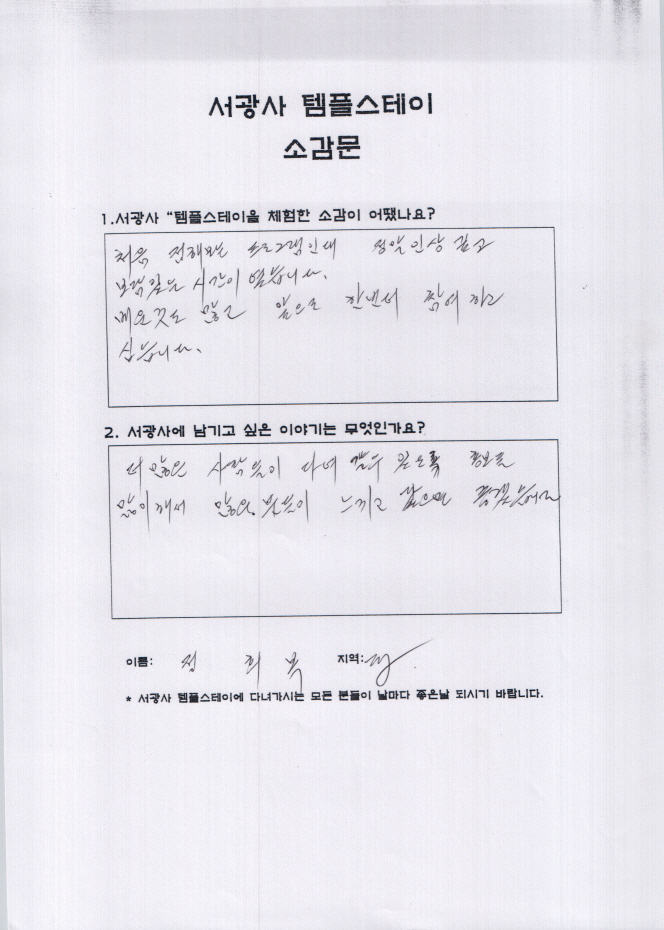 서광사 템플스테이
소감문
1.서광사 “템플스테이을 체험한 소감이 어땠나요?
처음 접해보는 프로그램인데 정말 인상 깊고
보람있는 시간이 였습니다.
배운것도 많고 앞으로 한번더 참여 하고
십습니다.
2. 서광사에 남기고 싶은 이야기는 무엇인가요?
더 많은 사람들이 다녀 갈수 있도록 홍보를
많이 해서 많은 분들이 느끼고 갔으면 좋겠습니다
이름: 정 희 지역:
* 서광사 템플스테이에 다녀가시는 모든 분들이 날마다 좋은날 되시기 바랍니다.